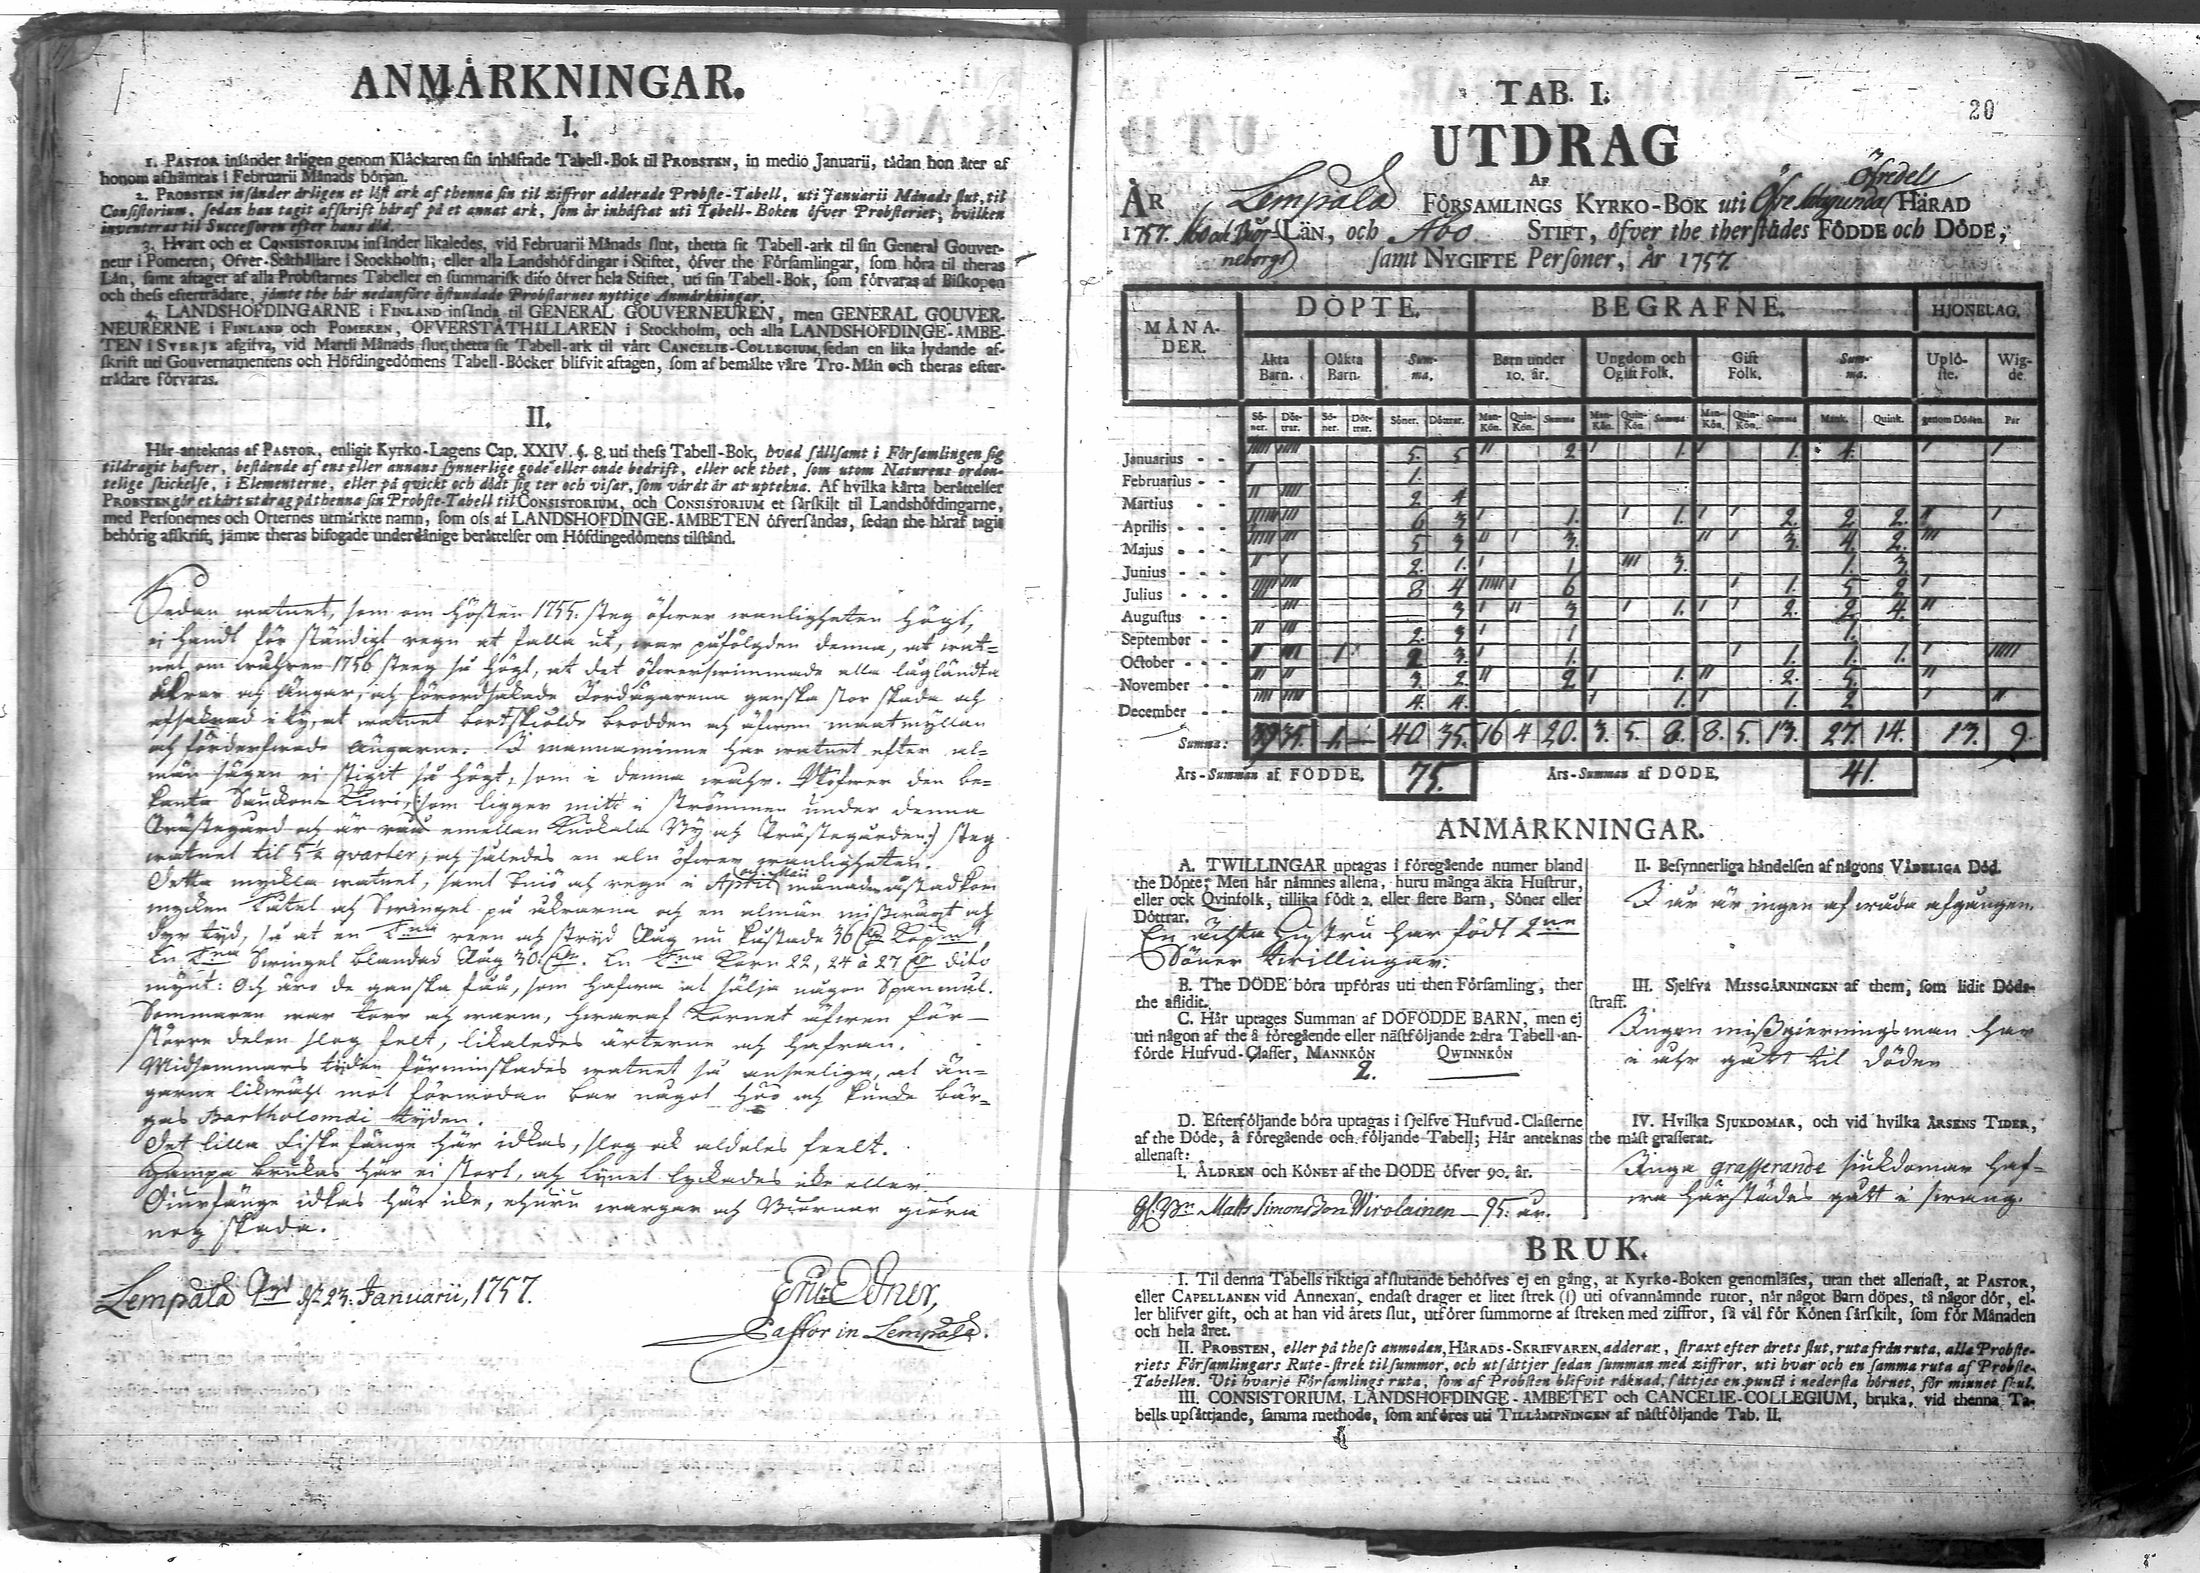 ANMÄRKNINGAR.
I.
1. PASTOR insänder årligen genom Klåckaren sin inhäftade Tabell-Bok til PROBSTEN, in medio Januarii, tådan hon åter af
honom afhämtas i Februarii Månads början.
2. PROBSTEN insänder årligen et löst ark af thenna sin til ziffror adderade Probste-Tabell, uti Januarii Månads slut, til
Consistorium, sedan han tagit afskrift häraf på et annat ark, som är inhäftat uti Tabell-Boken öfver Probsteriet; hvilken
inventeras til Successoren efter hans död.
3. Hvart och et CONSISTORIUM insänder likaledes, vid Februarii Månads slut, thetta sit Tabell-ark til sin General Gouver-
neur i Pomeren, Ofver-Ståthållare i Stockholm, eller alla Landshöfdingar i Stiftet, öfver the Församlingar, som höra til theras
Län, samt aftager af alla Probstarnes Tabeller en summarisk dito öfver hela Stiftet, uti sin Tabell-Bok, som förvaras af Biskopen
och thess efterträdare, jämte the här nedanföre åstundade Probstarnes nyttige Anmärkningar.
4. LANDSHOFDINGARNE i FINLAND insända til GENERAL GOUVERNEUREN, men GENERAL GOUVER-
NEURERNE i FINLAND och POMEREN, OFVERSTÅTHÅLLAREN i Stockholm, och alla LANDSHOFDINGE-AMBE-
TEN i SVERJE afgifva, vid Martii Månads slut, thetta sit Tabell-ark til vårt CANCELIE-COLLEGIUM, sedan en lika lydande af-
skrift uti Gouvernamentens och Höfdingedömens Tabell-Böcker blifvit aftagen, som af bemälte våre Tro-Män och theras efter-
trädare förvaras.
II.
Här anteknas af PASTOR, enligit Kyrko-Lagens Cap. XXIV. §. 8. uti thess Tabell-Bok, hvad sällsamt i Församlingen sig
tildragit hafver, bestående af ens eller annans synnerlige gode eller onde bedrift, eller ock thet, som utom Naturens orden-
telige skickelse, i Elementerne, eller på qvickt och dödt sig ter och visar, som värdt är at uptekna. Af hvilka korta berättelser
PROBSTEN gör et kort utdrag på thenna sin Probste-Tabell til CONSISTORIUM, och CONSISTORIUM et särskilt til Landshöfdingarne,
med Personernes och Orternes utmärkte namn, som oss af LANDSHOFDINGE-AMBETEN öfversändas, sedan the häraf tagit
behörig afskrift, jämte theras bifogade underdånige berättelser om Höfdingedömens tilstånd.
Sedan watnet, som om hösten 1755. steg öfwer wanligheten högt,
ei handt för ständigt regn at falla ut, war påföljden denna, at wat=
net om wåhren 1756 steeg så högt, at det öfwerswimmade alla lagländta
åkrar och ängar, och förordsakade Jordägarena ganska stor skada och
afsaknad i ty, at watnet bortskiölde brodden och äfwen maatmyllan
och förderfwade ängarne. I mannaminne har watnet efter al=
män sägen ei stigit så högt, som i denna wåhr. Ofwer den be=
kanta Saukon Kiwi, som ligger mitt i strömmen under denna
Prästegård och är emellan Kuokala By och Prästegården:) steg
watnet til 5½ qvarter, och således en aln öfwer wanligheten.
Detta myckla watnet, samt sniö och regn i April och Maii månader åstadkom
mycken Katel och Swingel på åkrarna och en almän misswäxt och
dyr tyd, så at en T:na reen och stryd Råg nu kostade 36 Kopm:t,
En T:na Swingel blandad Råg 30. En T:na Korn 22, 24 à 27 dito
mynt: Och äro de ganska fåå, som hafwa at sälja någon Spanmål.
Sommaren war torr och warm, hwaraf Kornet äfwen för=
större delen slog felt, likaledes ärterne och hafran.
Midsommars tyden förminskades watnet så anseeliga, at än=
garne likwähl mot förmodan bar något höö och kunde bär=
gas Bartholomæi tyden.
Det lilla Fiskefänge här idkas, slog ock aldeles feelt.
Hampa brukas här ei stort, och lynet lyckades icke eller.
Diurfänge idkas här icke, ehuru wargar och Biörnar giöra
nog skada.
Lempälä d. 23. Januarii, 1757.
Pastor in Lempälä.
20
TAB. I.
UTDRAG
AF
ÅR Lempälä FÖRSAMLINGS KYRKO-BOK uti Öfre Satagunda Öfredels HÄRAD
1757. Åbo och Biör- LÄN, och Åbo STIFT, öfver the therstädes FÖDDE och DÖDE,
neborgs samt NYGIFTE Personer, År 1757.
MÅNA-DER. DÖPTE. BEGRAFNE. HJONELAG.
Äkta Barn. Oäkta Barn. Sum-ma. Barn under 10. år. Ungdom och Ogift Folk. Gift Folk. Sum-ma. Uplö-ste. Wig-de
Sö-ner. Döt-trar. Sö-ner. Döt-trar. Söner. Döttrar. Man-Kön. Quin-Kön. Summa Man-Kön. Quin-Kön. Summa Man-Kön. Quin-Kön. Summa Mank. Quink. genom Döden. Par
Januarius 5. 5 2 1. 1. 4.
Februarius 1.
Martius 2 4
Aprilis 6 3 1. 1. 2. 2 2.
Majus 5 3 3. 3. 4 2.
Junius 2. 1. 1 3. 1. 3.
Julius 8 4 6 1. 5 2
Augustus 3 3 1. 2. 2 4.
September 2. 3 1 1.
October 2 3. 1. 1. 1. 1.
November 3. 2. 2 1. 2. 5.
December 4. 4. 1. 1. 2
Summa: 39 35. 1. — 40 35. 16 4 20. 3. 5. 8. 8. 5. 13. 27. 14. 13. 9.
Års-Summan af FÖDDE, 75. Års-Summan af DÖDE, 41.
ANMÄRKNINGAR.
A. TWILLINGAR uptagas i föregående numer bland
the Döpte; Men här nämnes allena, huru många äkta Hustrur,
eller ock Qvinfolk, tillika födt 2, eller flere Barn, Söner eller
Döttrar.
En ächta hustru har födt 2ne
Söner twillingar.
B. The DÖDE böra upföras uti then Församling, ther
the aflidit.
C. Här uptages Summan af DÖDFÖDDE BARN, men ej
uti någon af the å föregående eller nästföljande 2:dra Tabell an-
förde Hufvud-Classer, MANNKÖN QWINNKÖN
2. —
D. Efterföljande böra uptagas i sjelfve Hufvud-Classerne
af the Döde, å föregående och följande Tabell; Här anteknas
allenast:
I. ÅLDREN och KÖNET af the DÖDE öfver 90. år.
Matts Simonsson Wirolainen — 95. år.
II. Besynnerliga händelsen af någons VÅDELIGA Död.
I år är ingen af wåda afgången.
III. Sjelfva MISSGÄRNINGEN af them, som lidit Döds-
straff.
Ingen missgierningsman har
i åhr gått til döden
IV. Hvilka SJUKDOMAR, och vid hvilka ÅRSENS TIDER,
the mäst grasserat.
Inga grasserande siukdomar haf=
wa härstädes gått i swang.
BRUK.
I. Til denna Tabells riktiga afslutande behöfves ej en gång, at Kyrko-Boken genomläses, utan thet allenast, at PASTOR,
eller CAPELLANEN vid Annexan, endast drager et litet strek (I) uti ofvannämnde rutor, när något Barn döpes, tå någor dör, el-
ler blifver gift, och at han vid årets slut, utförer summorne af streken med ziffror, så väl för Könen särskilt, som för Månaden
och hela året.
II. PROBSTEN, eller på thess anmodan, HÄRADS-SKRIFVAREN, adderar, straxt efter årets slut, ruta från ruta, alla Probste-
riets Församlingars Rute-strek til summor, och utsättjer sedan summan med ziffror, uti hvar och en samma ruta af Probste-
Tabellen. Uti hvarje Församlings ruta, som af Probsten blifvit räknad, sättjes en punct i nedersta hörnet, för minnet skul.
III. CONSISTORIUM, LANDSHOFDINGE-AMBETET och CANCELIE-COLLEGIUM, bruka, vid thenna Ta-
bells upsättjande, samma methode, som anföres uti TILLÄMPNINGEN af nästföljande Tab. II.